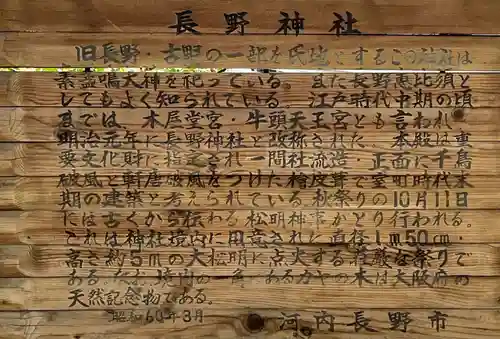 長野神社
旧長野・古野の一部を氏地とするこの神社は
素盞嗚大神を祀っている。また長野恵比須と
してもよく知られている。江戸時代中期の頃
までは、木屋堂宮・牛頭天王宮とも言われ、
明治元年に長野神社と改称された。本殿は重
要文化財に指定され一間社流造・正面に千鳥
破風と軒唐破風をつけた檜皮葺で室町時代末
期の建築と考えられている。秋祭りの10月11日
には古くから伝わる松明神事がとり行われる。
これは神社境内に用意された直径1m50cm・
高さ約5mの大松明に点火する荘厳な祭りで
ある。なお境内の一角にあるかやの木は大阪府の
天然記念物である。
昭和60年3月
河内長野市